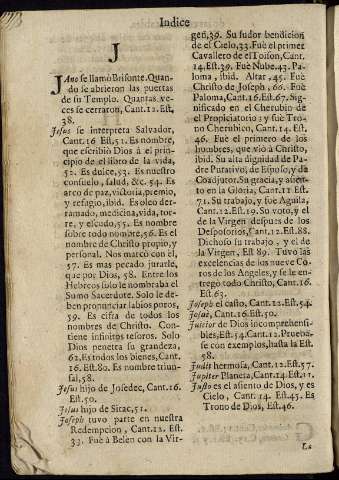 Indice
J
JAno se llamò Brifonte. Quan-
do se abrieron las puertas
de su Templo. Quantas ve-
ces se cerraron, Cant. 12. Est.
38.
Jesus se interpreta Salvador,
Cant. 16 Est. 51. Es nombre,
que escribiò Dios à el prin-
cipio de el libro de la vida,
52. Es dulce, 53. Es nuestro
consuelo, salud, &c. 54. Es
arco de paz, victoria, premio,
y refugio, ibid. Es oleo der-
ramado, medicina, vida, tor-
re, y escudo, 55. Es nombre
sobre todo nombre, 56. Es el
nombre de Christo propio, y
personal. Nos marcò con el,
57. Es mas pecado jurarle,
que por Dios, 58. Entre los
Hebreos solo le nombraba el
Sumo Sacerdote. Solo le de-
ben pronunciar labios puros,
59. Es cifra de todos los
nombres de Christo. Contiene
infinitos tesoros. Solo
Dios penetra su grandeza,
62. Es todos los bienes, Cant.
16. Est. 80. Es nombre triun-
fal, 58.
Jesus hijo de Josedec, Cant. 16.
Est. 50.
Jesus hijo de Sirac, 51.
Joseph tuvo parte en nuestra
Redempcion, Cant. 12. Est.
33. Fuè à Belèn con la Vir-
gen, 39. Su sudor bendicion
de el Cielo, 33. Fuè el primer
Cavallero de el Toison, Cant.
14. Est. 39. Fuè Nube. 43. Pa-
loma, ibid. Altar, 45. Fuè
Christo de Joseph, 66. Fuè
Paloma, Cant. 16. Est. 67. Sig-
nificada en el Cherubin de
el Propiciatorio; y fuè Tro-
no Cherubico, Cant. 14. Est.
46. Fuè el primero de los
hombres, que viò à Christo,
ibid. Su alta dignidad de Pa-
dre Putativo, de Esposo, y de
Coadjutor. Su gracia, y asien-
to en la Gloria, Cant. 12 Est.
71. Su trabajo, y fuè Aguila,
Cant. 12. Est. 59. Su voto, y el
de la Virgen despues de los
Desposorios, Cant. 12. Est. 88.
Dichoso su trabajo, y el de
la Virgen, Est 89. Tuvo las
excelencias de los nueve Co-
ros de los Angeles, y se le en-
tregò todo Christo, Cant. 16.
Est. 63.
Joseph el casto, Cant. 12. Est. 54.
Josuè, Cant. 16. Est. 50.
Juicios de Dios incomprehensi-
bles, Est. 54. Cant. 12. Prueba-
se con exemplos, hasta la Est.
58.
Judit hermosa, Cant. 12. Est. 57.
Jupiter Planeta, Cant. 14. Est. 11.
Justo es el asiento de Dios, y es
Cielo, Cant. 14. Est. 45. Es
Trono de Dios, Est. 46.
La